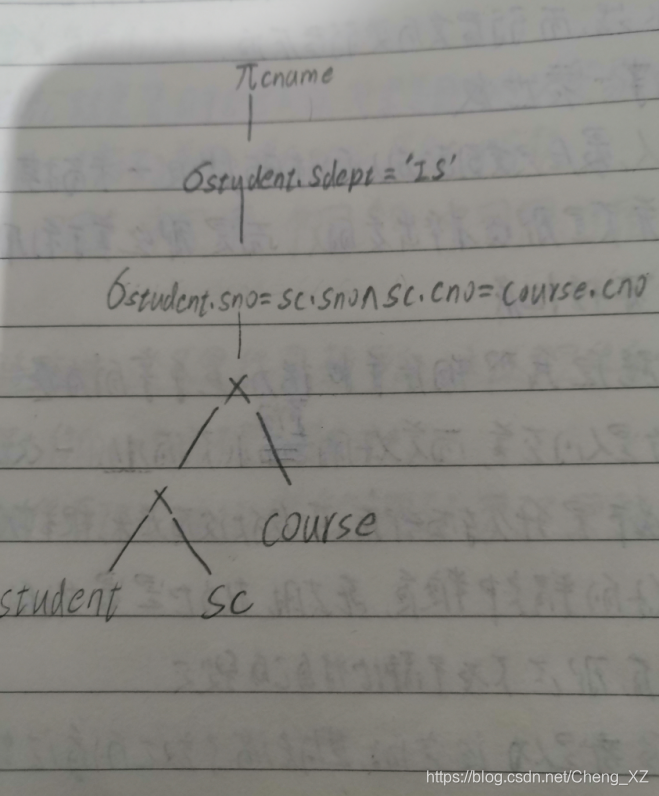 πcname
σstudent.Sdept='IS'
σstudent.sno=sc.sno∧sc.cno=course.cno
×
×
course
student
sc
https://blog.csdn.net/Cheng_XZ